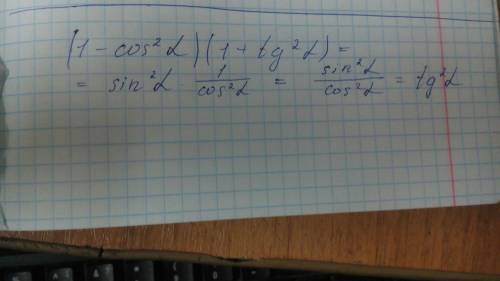 (1 - cos²α)(1 + tg²α) =
= sin²α 1/cos²α = sin²α/cos²α = tg²α